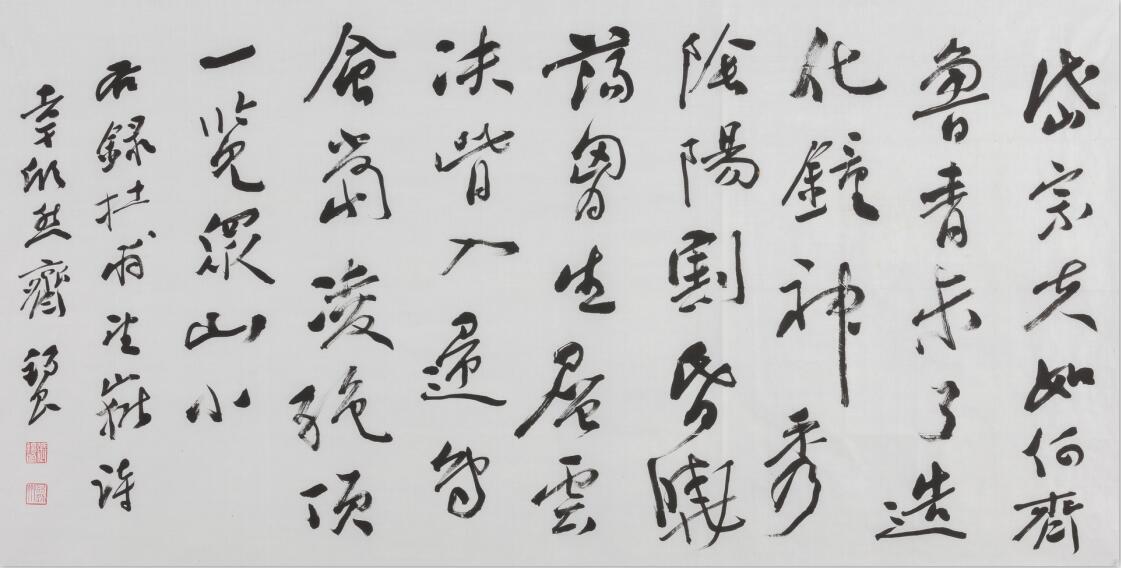 岱宗夫如何齊
魯青未了造
化鐘神秀
陰陽割昏曉
蕩胷生層雲
決眥入歸鳥
會當凌絕頂
一覽眾山小
右錄杜甫望嶽詩
辛卯然齋